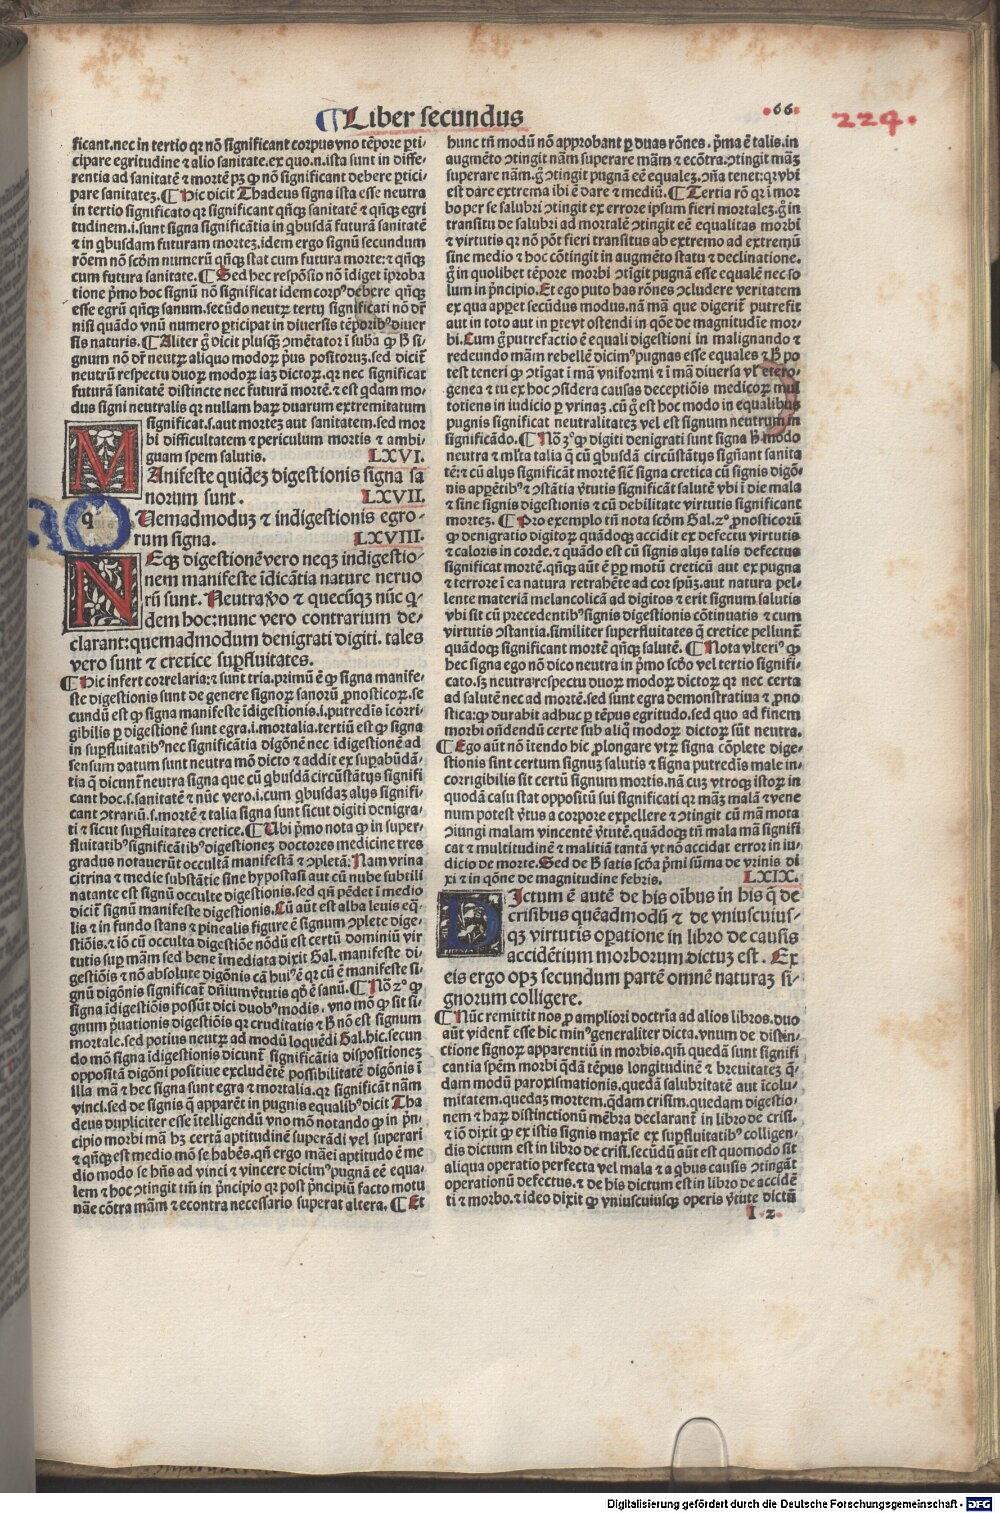 ¶Liber secundus
.66.
224.
ficant.nec in tertio qr nō significant corpus vno tēpore ꝑti-
cipare egritudine ⁊ alio sanitate.ex quo.n.ista sunt in diffe-
rentia ad sanitatē ⁊ mortē pꝫ ꝙ nō significant debere ꝑtici-
pare sanitateꝫ.¶Hic dicit Thadeus signa ista esse neutra
in tertio significato qr significant qñqꝫ sanitatē ⁊ qñqꝫ egri
tudinem.i.sunt signa significātia in qbusdā futurā sanitatē
⁊ in qbusdam futuram morteꝫ.idem ergo signū secundum
rōem nō scōm numerū qñqꝫ stat cum futura morte:⁊ qñqꝫ
cum futura sanitate.¶Sed hec respōsio nō īdiget īproba
tione p̄mo hoc signū nō significat idem corpꝰ debere qñqꝫ
esse egrū qñqꝫ sanum.secūdo neutꝝ tertij significati nō dr̄
nisi quādo vnū numero ꝑticipat in diuersis tēporibꝰ diuer
sis naturis.¶Aliter ḡ dicit plusqꝫ ↄmētator ī suba ꝙ ħ si-
gnum nō dr̄ neutꝝ aliquo modoꝝ p̄us positoruꝫ.sed dicit̄
neutrū respectu duoꝝ modoꝝ iaꝫ dictoꝝ.qr nec significat
futurā sanitatē distincte nec futurā mortē.⁊ est qdam mo-
dus signi neutralis qr nullam haꝝ duarum extremitatum
significat.s.aut morteꝫ aut sanitatem.sed mor
bi difficultatem ⁊ periculum mortis ⁊ ambi-
guam spem salutis. LXVI.
MAnifeste quideꝫ digestionis signa sa
norum sunt. LXVII.
q Uemadmoduꝫ ⁊ indigestionis egro-
rum signa. LXVIII.
NEqꝫ digestionē vero neqꝫ indigestio-
nem manifeste īdicātia nature neruo
rū sunt. Neutra v̄o ⁊ quecūqꝫ nūc q-
dem hoc:nunc vero contrarium de-
clarant:quemadmodum denigrati digiti. tales
vero sunt ⁊ cretice suꝑfluitates.
¶Hic infert correlaria:⁊ sunt tria.primū ē ꝙ signa manife-
ste digestionis sunt de genere signoꝝ sanorū ꝓnosticoꝝ.se
cundū est ꝙ signa manifeste īdigestionis.i.putredīs īcorri-
gibilis ꝑ digestionē sunt egra.i.mortalia.tertiū est ꝙ signa
in suꝑfluitatibꝰ nec significātia digōnē nec īdigestionē ad
sensum datum sunt neutra mō dicto ⁊ addit ex suꝑabūdā-
tia q̄ dicunt̄ neutra signa que cū qbusdā circūstātys signifi
cant hoc.s.sanitatē ⁊ nūc vero.i.cum qbusdaꝫ alijs signifi-
cant ↄtrariū.s.mortē ⁊ talia signa sunt sicut digiti denigra-
ti ⁊ sicut suꝑfluitates cretice.¶Ubi p̄mo nota ꝙ in super-
fluitatibꝰ significātibꝰ digestioneꝫ doctores medicine tres
gradus notauerūt occultā manifestā ⁊ ↄpletā: Nam vrina
citrina ⁊ medie substātie sine hypostasi aut cū nube subtili
natante est signū occulte digestionis.sed qñ pēdet ī medio
dicit̄ signū manifeste digestionis.Cū aūt est alba leuis eq̄-
lis ⁊ in fundo stans ⁊ pinealis figure ē signum ↄplete dige-
stiōis.⁊ iō cū occulta digestiōe nōdū est certū dominiū vir
tutis suꝑ mām sed bene īmediata dixit Gal.manifeste di-
gestiōis ⁊ nō absolute digōnis cā huiꝰ ē qr cū ē manifeste si-
gnū digōnis significat̄ dn̄ium v̄tutis qd ē sanū.¶Nō 2ꝰ ꝙ
signa īdigestiōis possūt dici duobꝰ modis. vno mō ꝙ sit si-
gnum p̄uationis digestiōis qr cruditatis ⁊ ħ nō est signum
mortale.sed potius neutꝝ ad modū loquēdi Gal.hic.secun
do mō signa īdigestionis dicunt̄ significātia dispositioneꝫ
oppositā digōni positiue excludētē possibilitatē digōnis ī
illa mā ⁊ hec signa sunt egra ⁊ mortalia.qr significāt nām
vinci.sed de signis q̄ apparēt in pugnis equalibꝰ dicit Tha
deus dupliciter esse ītelligendū vno mō notando ꝙ in p̄n-
cipio morbi mā hꝫ certā aptitudinē superādi vel superari
⁊ qñqꝫ est medio mō se habēs.qñ ergo māei aptitudo ē me
dio modo se hn̄s ad vinci ⁊ vincere dicimꝰ pugnā eē equa-
lem ⁊ hoc ↄtingit tm̄ in p̄ncipio qr post p̄ncipiū facto motu
nāe cōtra mām ⁊ econtra necessario superat altera.¶Et
hunc tn̄ modū nō approbant ꝑ duas rōnes. p̄ma ē talis.in
augmēto ↄtingit nām superare mām ⁊ ecōtra.ↄtingit māꝫ
superare nām.ḡ ↄtingit pugnā eē equaleꝫ.ↄn̄a tenet:qr vbi
est dare extrema ibi ē dare ⁊ mediū.¶Tertia rō qr ī mor
bo per se salubri ↄtingit ex errore ipsum fieri mortaleꝫ.ḡ in
transitu de salubri ad mortalē ↄtingit eē equalitas morbi
⁊ virtutis qr nō pōt fieri transitus ab extremo ad extremū
sine medio ⁊ hoc cōtingit in augmēto statu ⁊ declinatione.
ḡ in quolibet tēpore morbi ↄtīgit pugnā esse equalē nec so
lum in p̄ncipio.Et ego puto has rōnes ↄcludere veritatem
ex qua apꝑet secūdus modus.nā mā que digerit̄ putrefit
aut in toto aut in ꝑte vt ostendi in qōe de magnitudīe mor-
bi.Cum ḡ putrefactio ē equali digestioni in malignando ⁊
redeundo mām rebellē dicimꝰ pugnas esse equales ⁊ ħ po
test teneri ꝙ ↄtīgat ī mā vniformi ⁊ ī mā diuersa vl etero-
genea ⁊ tu ex hoc ↄsidera causas deceptiōis medicoꝝ mul
totiens in iudicio ꝑ vrinaꝫ.cū ḡ est hoc modo in equalibus
pugnis significat neutralitateꝫ vel est signum neutrum in
significādo.¶Nō 2ꝰ ꝙ digiti denigrati sunt signa ħ modo
neutra ⁊ ml̄ta talia q̄ cū qbusdam circūstātys sign̄ant sanita
tē:⁊ cū alijs significāt mortē sic̄ signa cretica cū signis digō-
nis appētibꝰ ⁊ ↄstātia v̄tutis significāt salutē vbi ī die mala
⁊ sine signis digestionis ⁊ cū debilitate virtutis significant
morteꝫ.¶Pro exemplo tn̄ nota scōm Gal.2ꝰ ꝓnosticorū
ꝙ denigratio digitoꝝ quādoqꝫ accidit ex defectu virtutis
⁊ caloris in corde.⁊ quādo est cū signis alijs talis defectus
significat mortē.qñqꝫ aūt ē ꝑꝑ motū creticū aut ex pugna
⁊ terrore ī ea natura retrahēte ad cor spūꝫ.aut natura pel-
lente materiā melancolicā ad digitos ⁊ erit signum salutis
vbi sit cū precedentibꝰ signis digestionis cōtinuatis ⁊ cum
virtutis ↄstantia.similiter superfluitates q̄ cretice pellunt̄
quādoqꝫ significant mortē qñqꝫ salutē.¶Nota vlteriꝰ ꝙ
hec signa ego nō dico neutra in p̄mo scd̄o vel tertio signifi-
cato.sꝫ neutra respectu duoꝝ modoꝝ dictoꝝ qr nec certa
ad salutē nec ad mortē.sed sunt egra demonstratiua ⁊ ꝓno
stica:ꝙ durabit adhuc ꝑ tēpus egritudo.sed quo ad finem
morbi on̄dendū certe sub aliq̄ modoꝝ dictoꝝ sūt neutra.
¶Ego aūt nō ītendo hic ꝓlongare vtꝝ signa cōplete dige-
stionis sint certum signuꝫ salutis ⁊ signa putredīs male in-
corrigibilis sit certū signum mortis.nā cuꝫ vtroqꝫ istoꝝ in
quodā casu stat oppositū sui significati qr māꝫ malā ⁊ vene
num potest v̄tus a corpore expellere ⁊ ↄtingit cū mā mota
ↄiungi malam vincentē v̄tutē.quādoqꝫ tn̄ mala mā signifi
cat ⁊ multitudinē ⁊ malitiā tantā vt nō accidat error in iu-
dicio de morte.Sed de ħ satis scōa p̄mi sūma de vrinis di
xi ⁊ in qōne de magnitudine febris. LXIX.
DIctum ē autē de his oībus in his q̄ de
crisibus quēadmodū ⁊ de vniuscuius-
qꝫ virtutis oꝑatione in libro de causis
accidētium morborum dictuꝫ est. Ex
eis ergo opꝫ secundum partē omnē naturaꝫ si-
gnorum colligere.
¶Nūc remittit nos ꝓ ampliori doctrīa ad alios libros.duo
aūt vident̄ esse hic minꝰ generaliter dicta.vnum de distin-
ctione signoꝝ apparentiū in morbis.qm̄ quedā sunt signifi
cantia spēm morbi qdā tēpus longitudinē ⁊ breuitateꝫ q-
dam modū paroxismationis.quedā salubritatē aut īcolu-
mitatem.quedaꝫ mortem.qdam crisim.quedam digestio-
nem ⁊ harꝝ distinctionū mēbra declarant̄ in libro de crisi.
⁊ iō dixit ꝙ ex istis signis maxīe ex suꝑfluitatibꝰ colligen-
dis dictum est in libro de crisi.secūdū aūt est quomodo sit
aliqua operatio perfecta vel mala ⁊ a qbus causis ↄtingāt
operationū defectus.⁊ de his dictum est in libro de accidē
ti ⁊ morbo.⁊ ideo dixit ꝙ vniuscuiusqꝫ operis v̄tute dictū
I 2
Digitalisierung gefördert durch die Deutsche Forschungsgemeinschaft - DFG